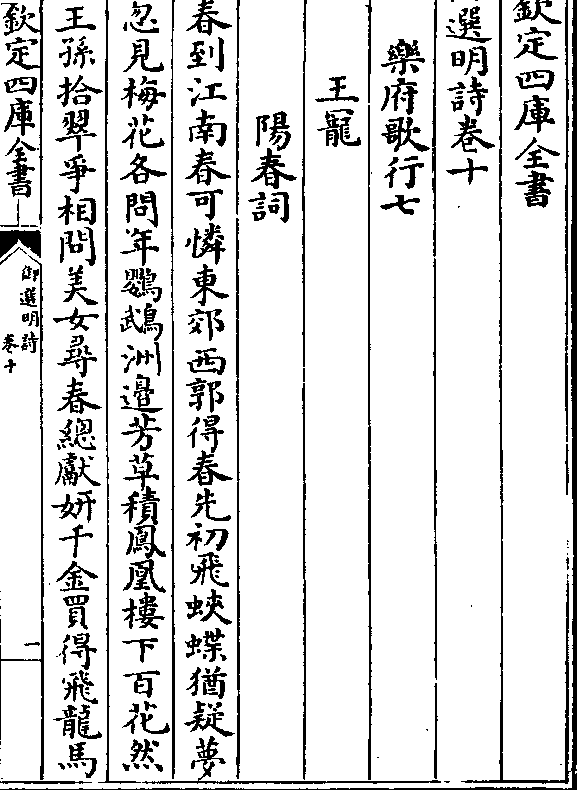 欽定四庫全書
選明詩卷十
樂府歌行七
王寵
陽春詞
春到江南春可憐東郊西郭得春先初飛蛺蝶猶疑夢
忽見梅花各問年鸚鵡洲邉芳草積鳳凰樓下百花然
王孫拾翠爭相問美女尋春總獻妍千金買得飛龍馬
欽定四庫全書
御選明詩
卷十
一